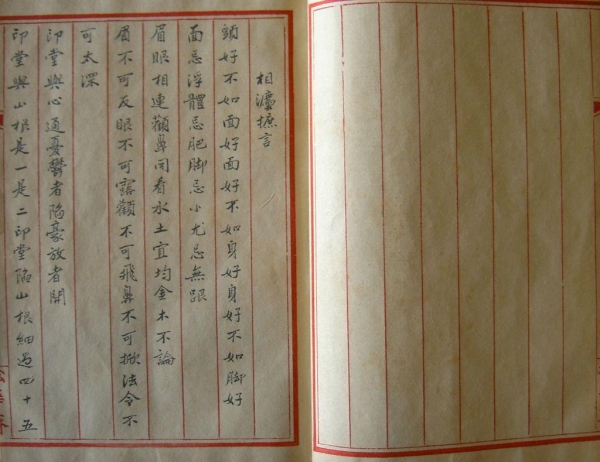 相濅摭言
頭好不如面好面好不如身好身好不如脚好
面忌浮體忌肥脚忌小尤忌無跟
眉眼相連顴鼻同看水土宜均金木不論
眉不可反眼不可露顴不可飛鼻不可掀法令不
可太深
印堂與心通憂鬱者陷豪放者開
印堂與山根是一是二印堂陷山根細過四十五